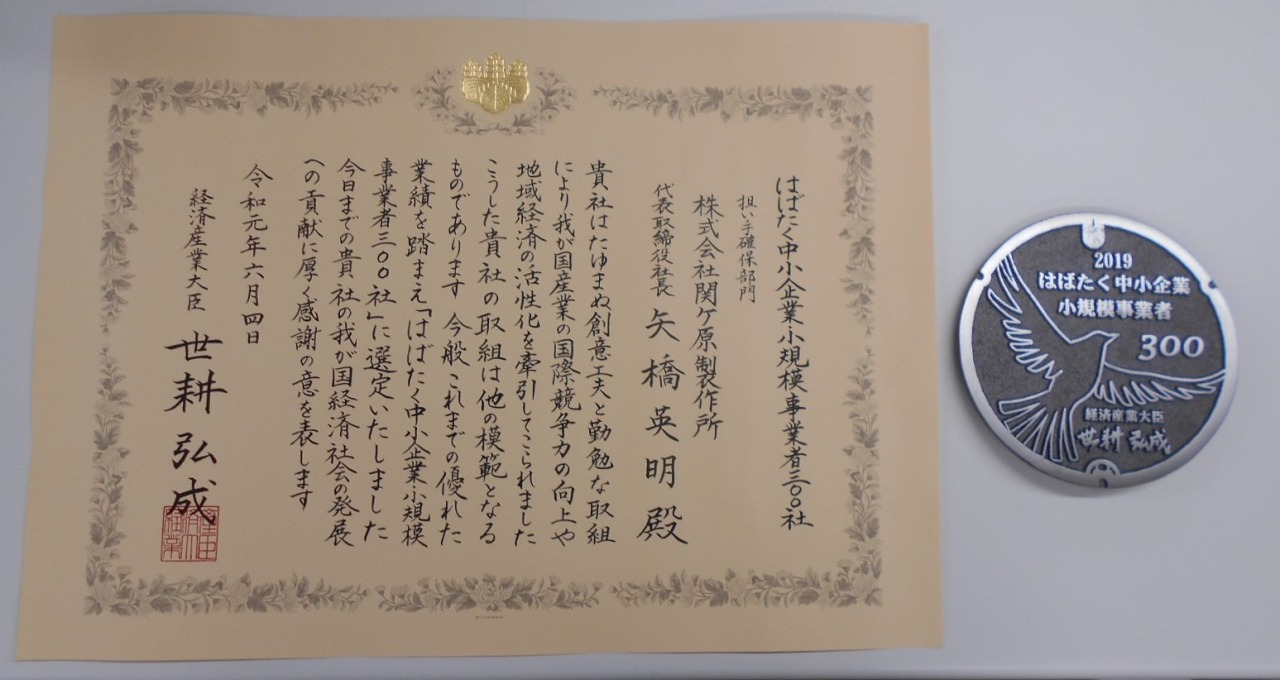 はばたく中小企業・小規模事業者三〇〇社
担い手確保部門
株式会社関ケ原製作所
代表取締役社長 矢橋英明殿
貴社はたゆまぬ創意工夫と勤勉な取組
により我が国産業の国際競争力の向上や
地域経済の活性化を牽引してこられました
こうした貴社の取組は他の模範となる
ものであります 今般これまでの優れた
業績を踏まえ「はばたく中小企業・小規模
事業者三〇〇社」に選定いたしました
今日までの貴社の我が国経済社会の発展
への貢献に厚く感謝の意を表します
令和元年六月四日
経済産業大臣 世耕弘成
2019
はばたく中小企業
小規模事業者
300
経済産業大臣
世耕弘成